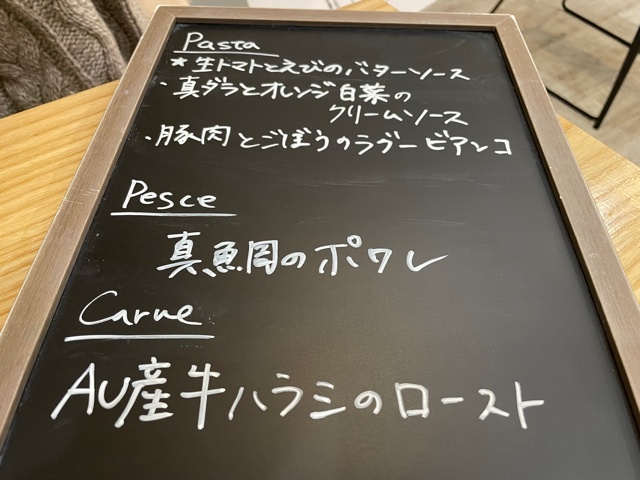 Pasta
★生トマトとえびのバターソース
・真ダラとオレンジ白菜の
クリームソース
・豚肉とごぼうのラグービアンコ
Pesce
真魚周のポワレ
Carne
AU産牛ハラミのロースト